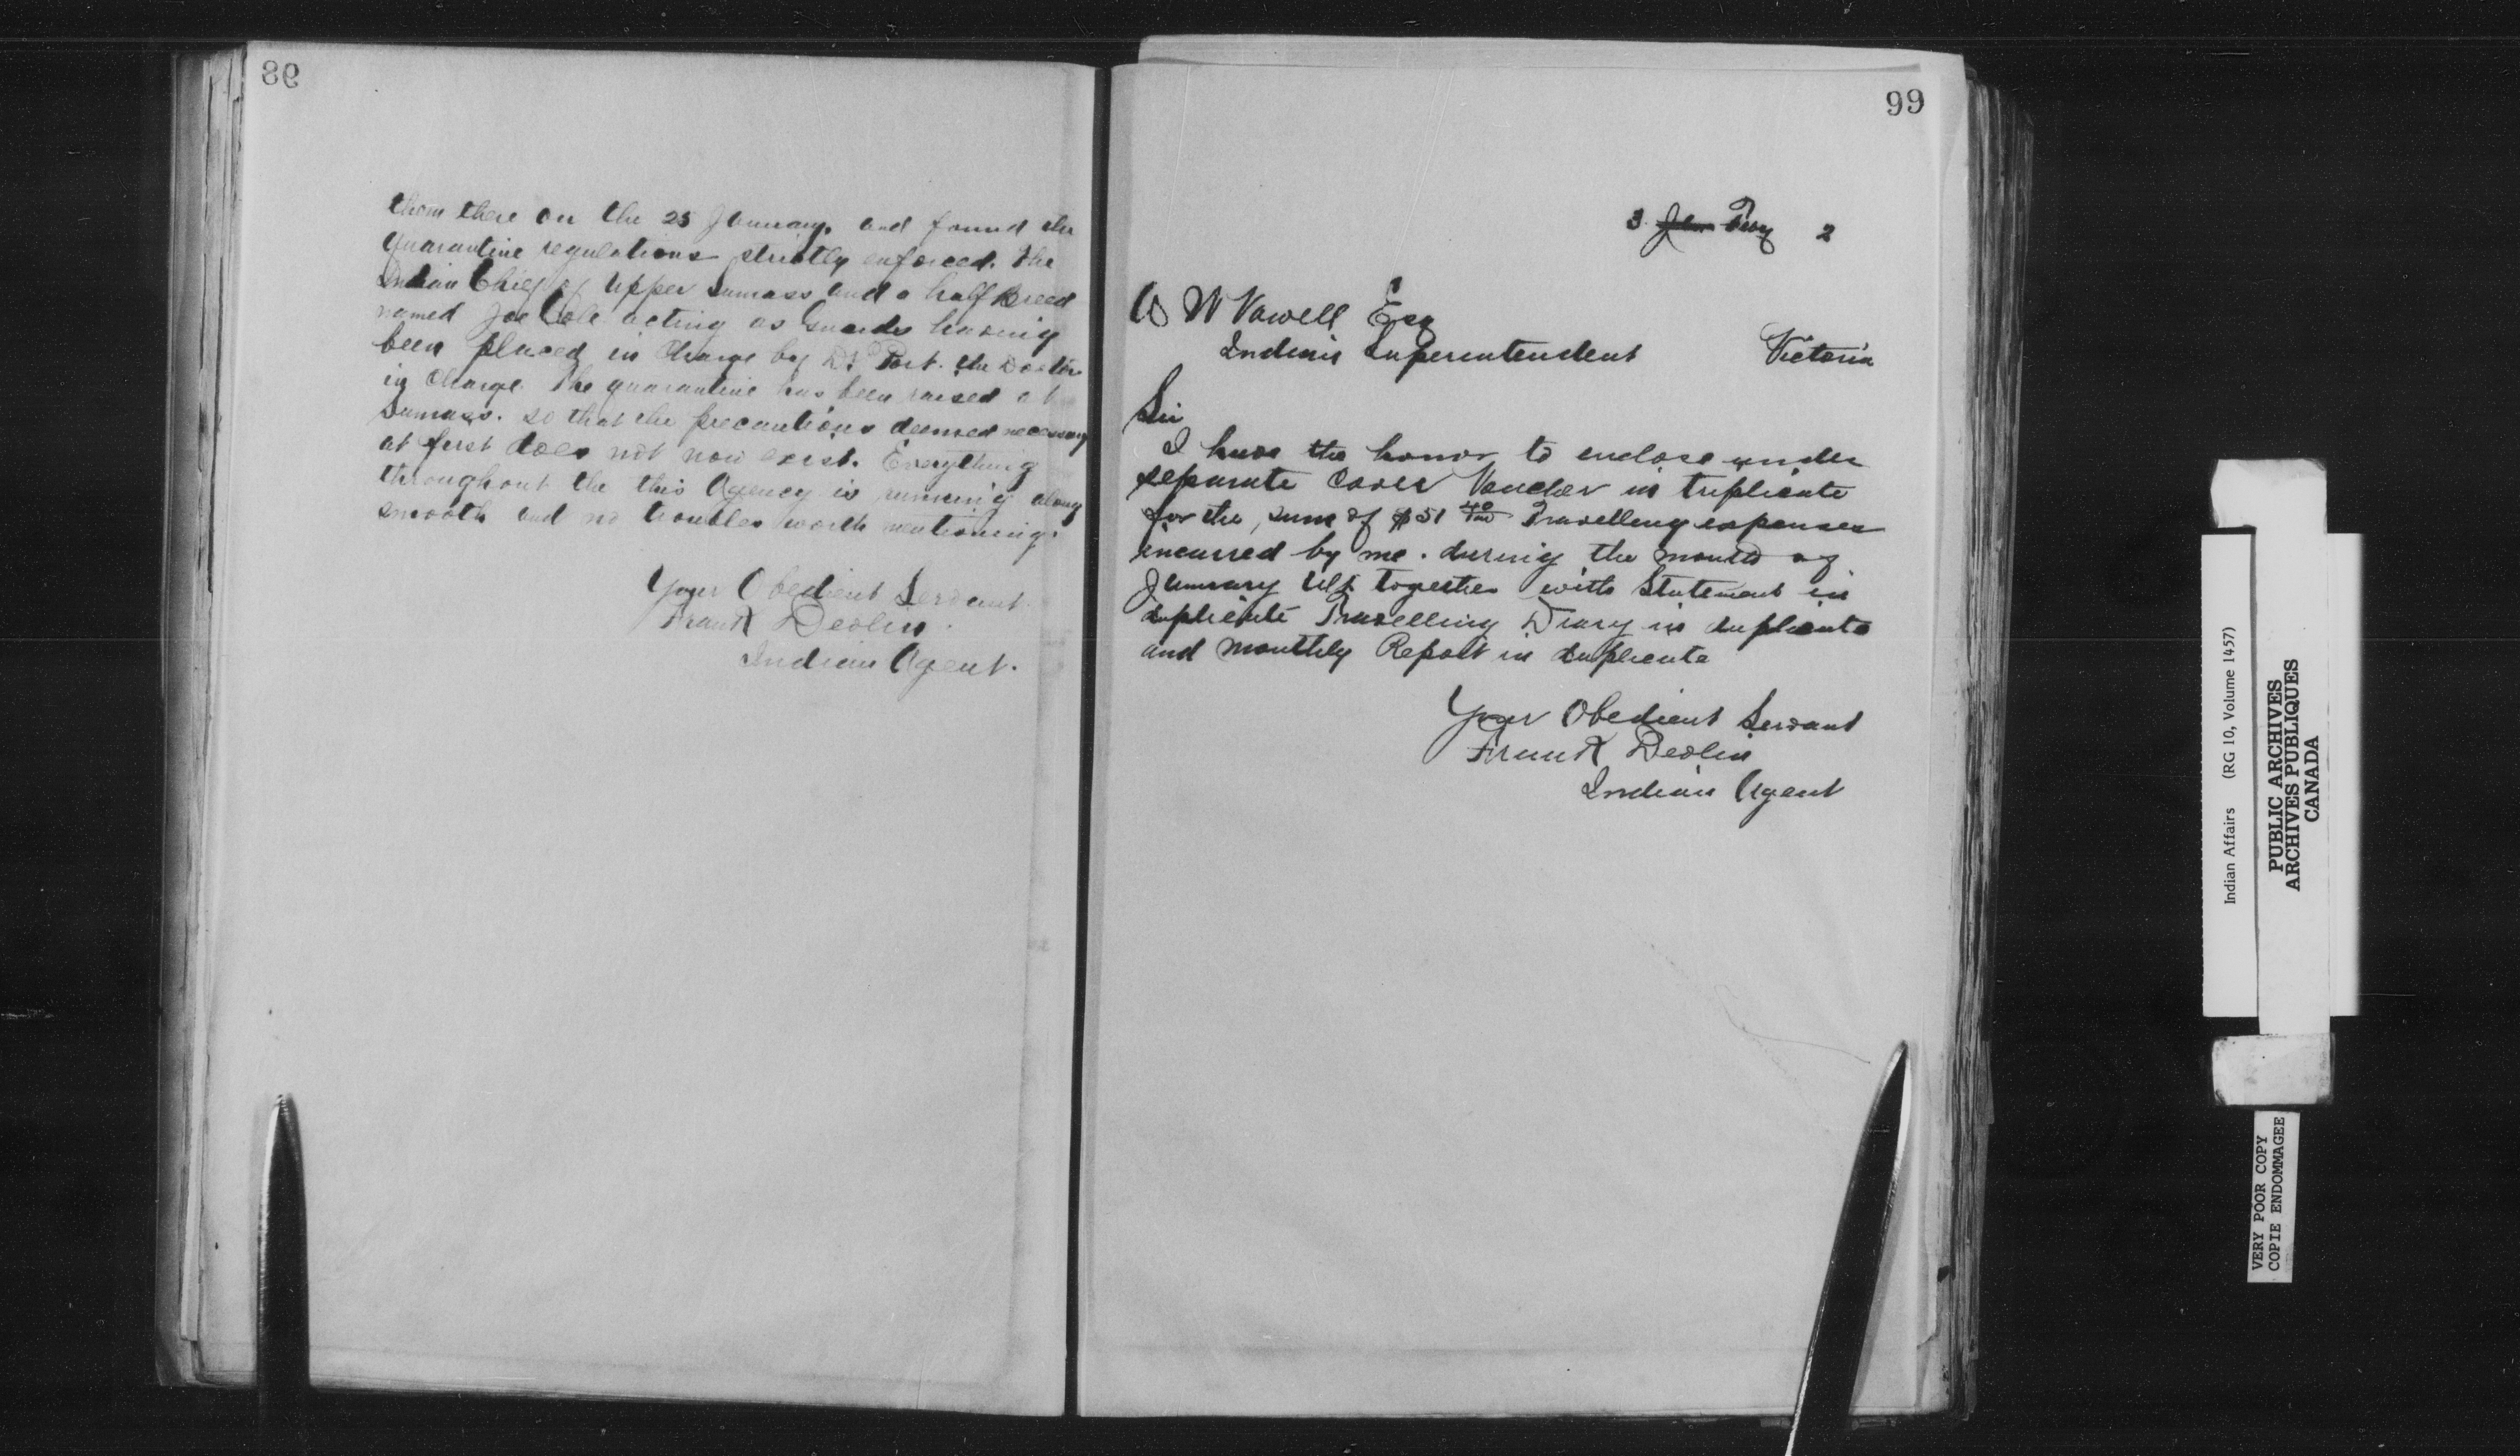 98
them there on the 25 January. and found the
Quarantine regulations strictly enforced. The
Indian Chief of Upper Sumass and a half Breed
named Joe Cole acting as Guards having
been placed in Charge by Dr Port. the Doctor
in Charge. The quarantine has been raised at
Sumass. so that the precautions deemed necessary
at first does not now exist. Everything
throughout the this Agency is running along
smooth and no troubles worth mentioning.
Your Obedient Servant.
Frank Devlin.
Indian Agent.
99
3 Jan Feby 2
A W Vowell Esq
Indian Superintendent Victoria
Sir
I have the honor to enclose under
separate cover Voucher in triplicate
for the sum of $51 40/100 Travelling expenses
incurred by me. during the month of
January Ult together with Statement in
duplicate Travelling Diary in duplicate
and monthly Report in duplicate
Your Obedient Servant
Frank Devlin
Indian Agent
Indian Affairs (RG 10, Volume 1457)
PUBLIC ARCHIVES
ARCHIVES PUBLIQUES
CANADA
VERY POOR COPY
COPIE ENDOMMAGEE